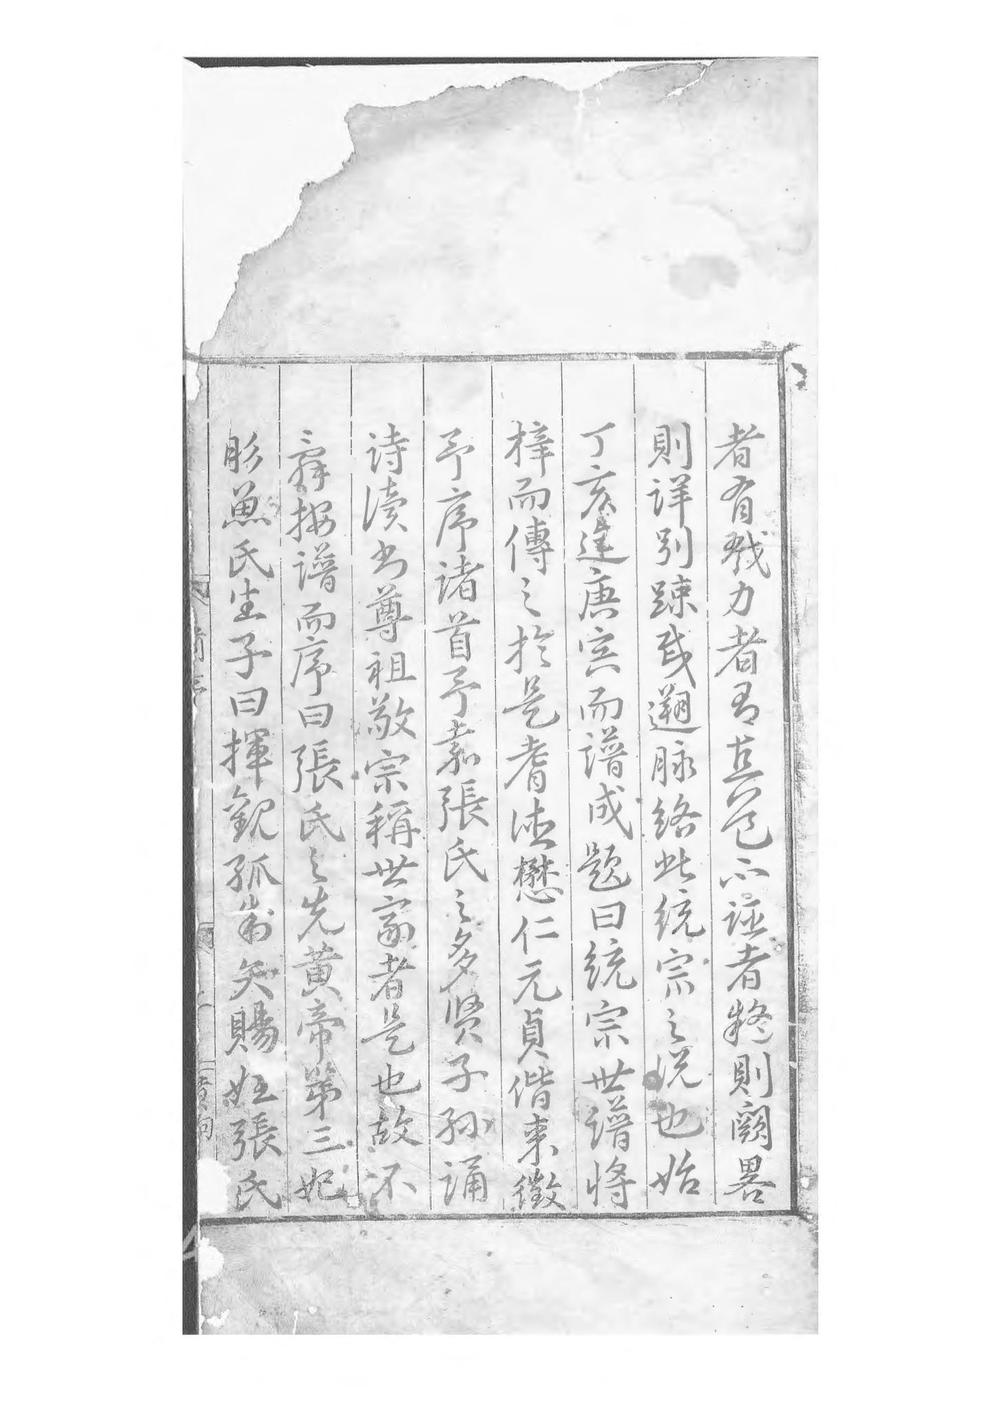 者有戮力者有其邑不誌者疑則闕畧
則詳別疎或遡脉絡此統宗之說也始
丁亥達庚寅而譜成題曰統宗世譜將
梓而傳之於是耆德懋仁元貞偕來徵
予序諸首予嘉張氏之多賢子孫誦
詩讀書尊祖敬宗稱世家者是也故不
辭按譜而序曰張氏之先黃帝第三妃
肜魚氏生子曰揮觀弧制矢賜姓張氏